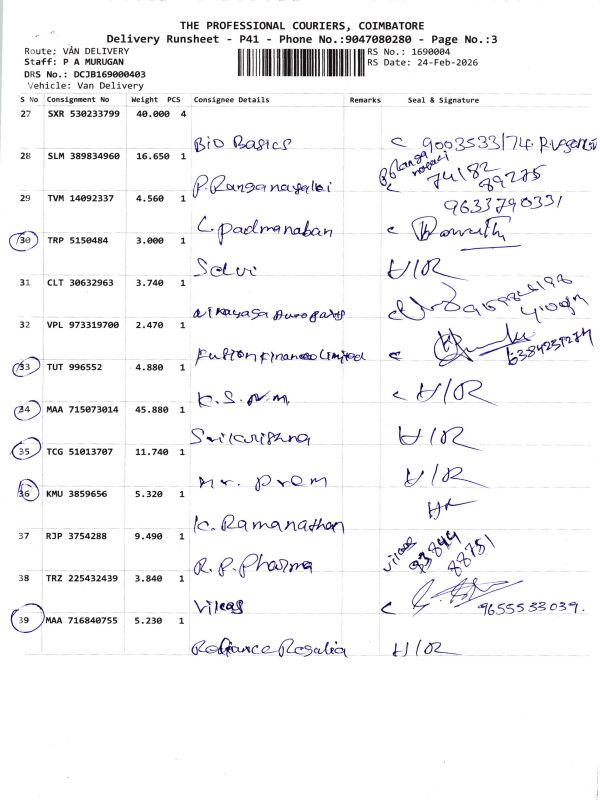 THE PROFESSIONAL COURIERS, COIMBATORE
Delivery Runsheet - P41 - Phone No.:9047080280 - Page No.:3
Route: VAN DELIVERY
RS No.: 1690004
Staff: P A MURUGAN
RS Date: 24-Feb-2026
DRS No.: DCJB169000403
Vehicle: Van Delivery
S No Consignment No Weight PCS Consignee Details Remarks Seal & Signature
27 SXR 530233799 40.000 4
Bio Basics
28 SLM 389834960 16.650 1
P. Ranganayaki 74182
89275
29 TVM 14092337 4.560 1
9633790331
C. Padmanaban
30 TRP 5150484 3.000 1
Selvi H/R
31 CLT 30632963 3.740 1
32 VPL 973319700 2.470 1
Fusion Finance Limited
33 TUT 996552 4.880 1
K.S.N.M H/R
34 MAA 715073014 45.880 1
Srikrishna H/R
35 TCG 51013707 11.740 1
Mr. Prem H/R
36 KMU 3859656 5.320 1
K. Ramanathan
37 RJP 3754288 9.490 1
R.P. Pharma 93844
88751
38 TRZ 225432439 3.840 1
Vikas 9655533039.
39 MAA 716840755 5.230 1
Reliance Rosalia H/R